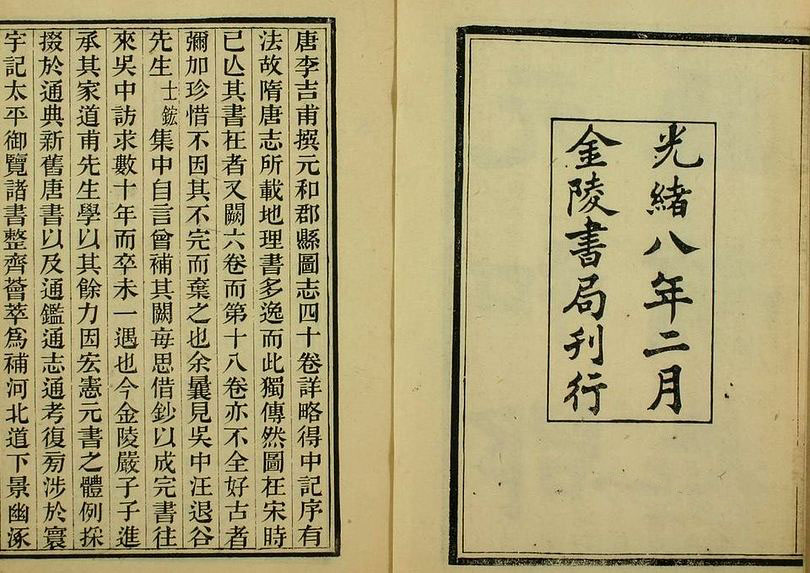 光緒八年二月
金陵書局刊行
唐李吉甫撰元和郡縣圖志四十卷詳略得中記序有
法故隋唐志所載地理書多逸而此獨傳然圖在宋時
已亾其書在者又闕六卷而第十八卷亦不全好古者
彌加珍惜不因其不完而棄之也余曩見吳中汪退谷
先生士鋐集中自言曾補其闕每思借鈔以成完書往
來吳中訪求數十年而卒未一遇也今金陵嚴子子進
承其家道甫先生學以其餘力因宏憲元書之體例採
掇於通典新舊唐書以及通鑑通志通考復旁涉於寰
宇記太平御覽諸書整齊薈萃爲補河北道下景幽涿